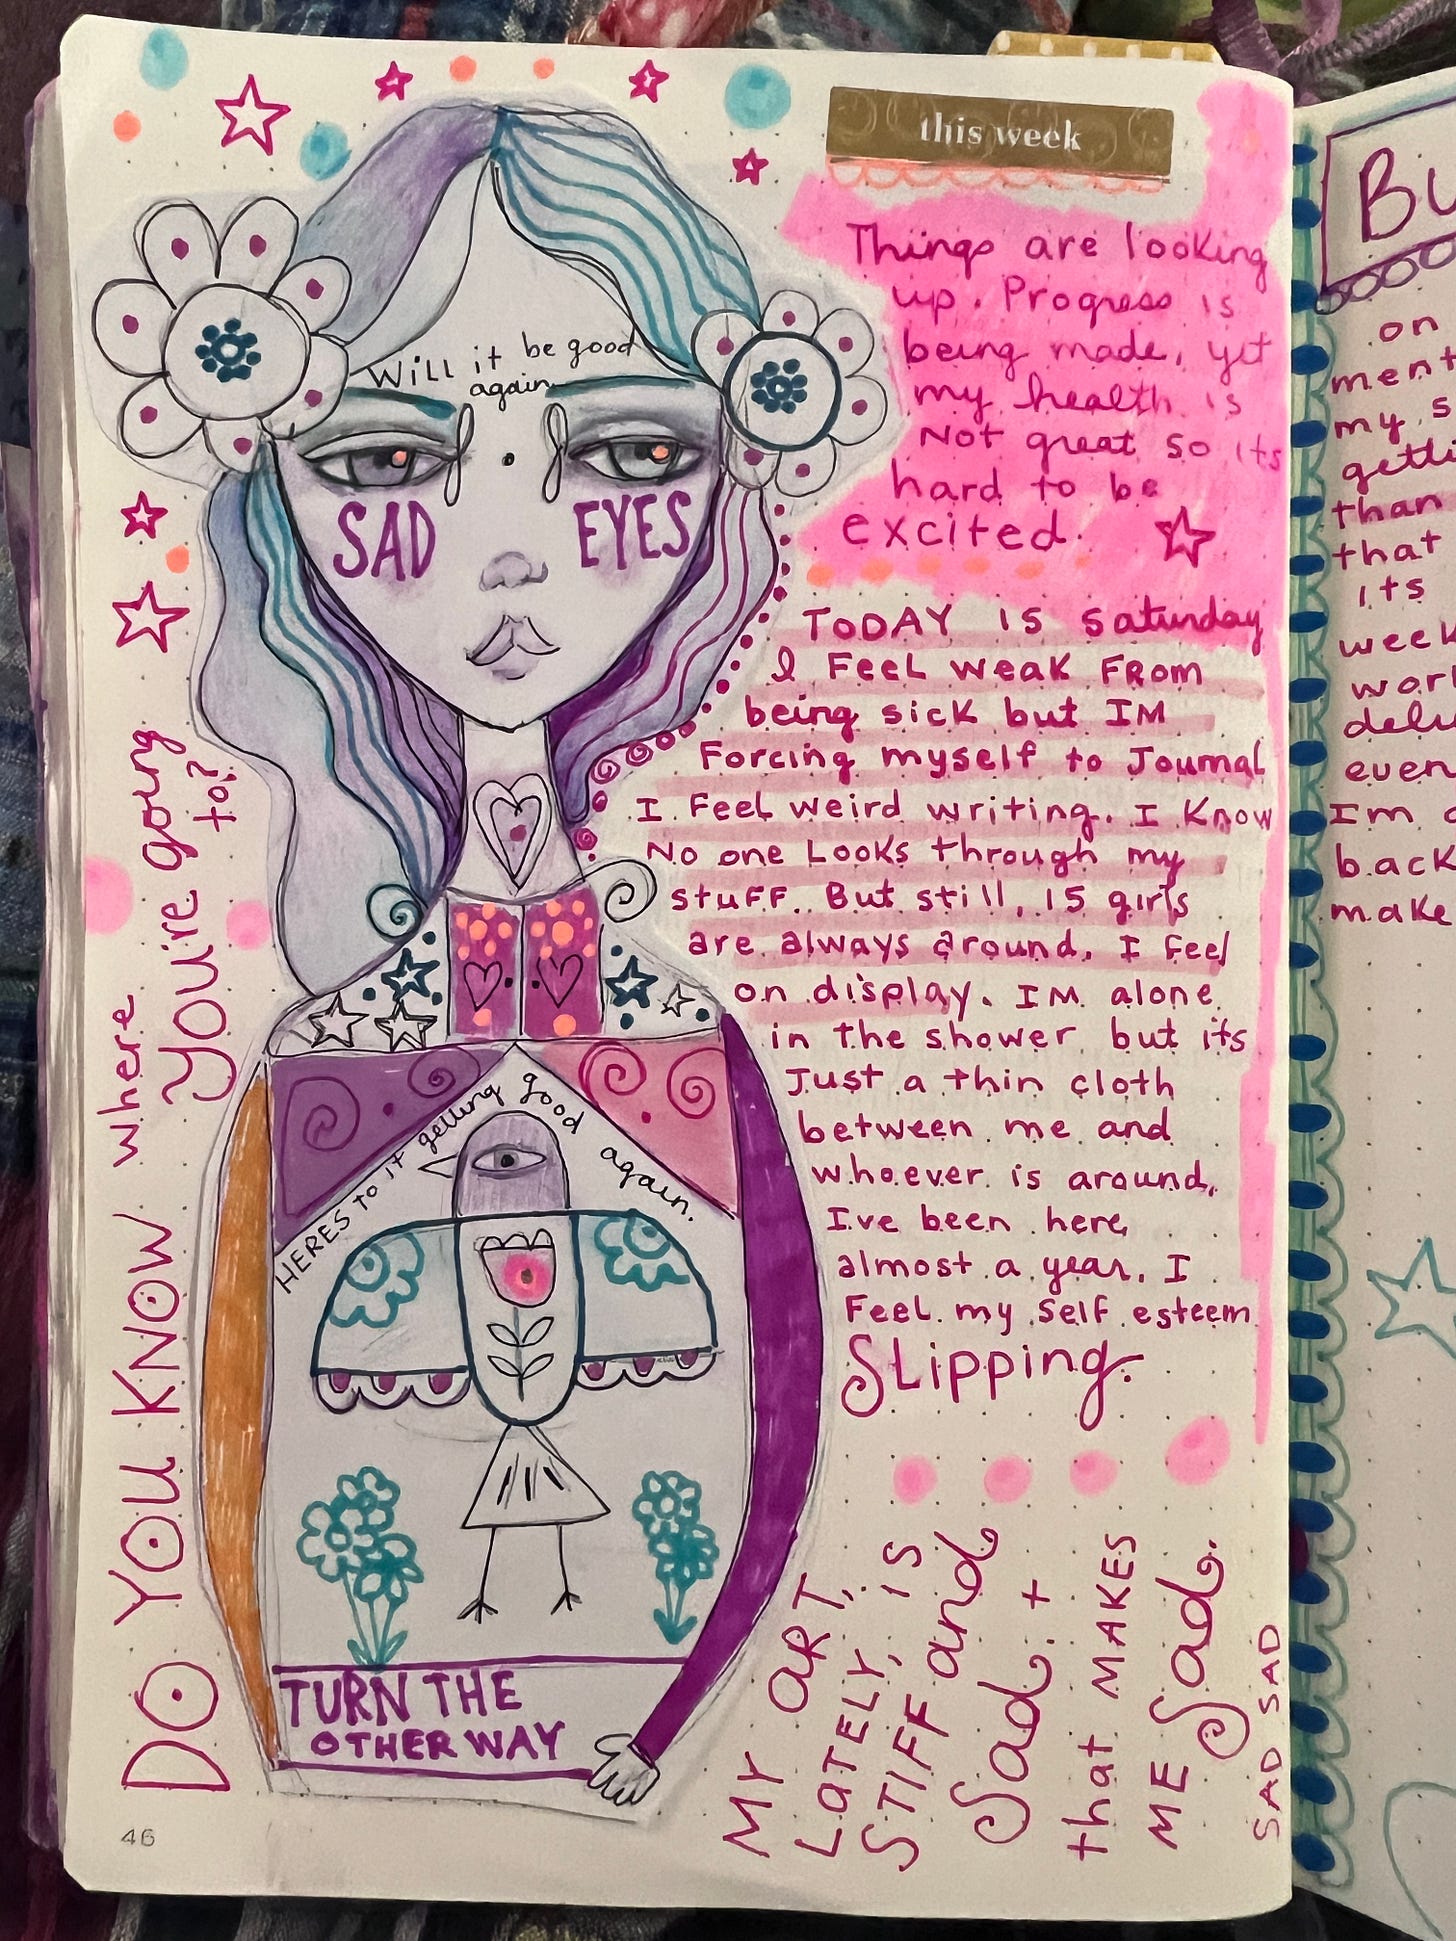 this week
Things are looking
up. Progress is
being made, yet
my health is
Not great so its
hard to be
excited.
TODAY IS saturday
I FEEL weak FROM
being sick but IM
Forcing myself to Journal
I Feel weird writing. I Know
No one Looks through my
stuFF. But still, 15 girls
are always around. I Feel
on display. IM alone
in the shower but its
Just a thin cloth
between me and
whoever is around.
I've been here
almost a year. I
Feel my self esteem
SLipping.
MY ART,
LATELY, IS
STIFF and
Sad +
that MAKES
ME Sad.
SAD SAD
Will it be good
again
SAD EYES
HERES TO it getting good again.
TURN THE
OTHER WAY
DO YOU KNOW where
You're going
to?
46
Bu
on
ment
my s
getti
than
that
its
week
wor
delu
even
Im
back
make